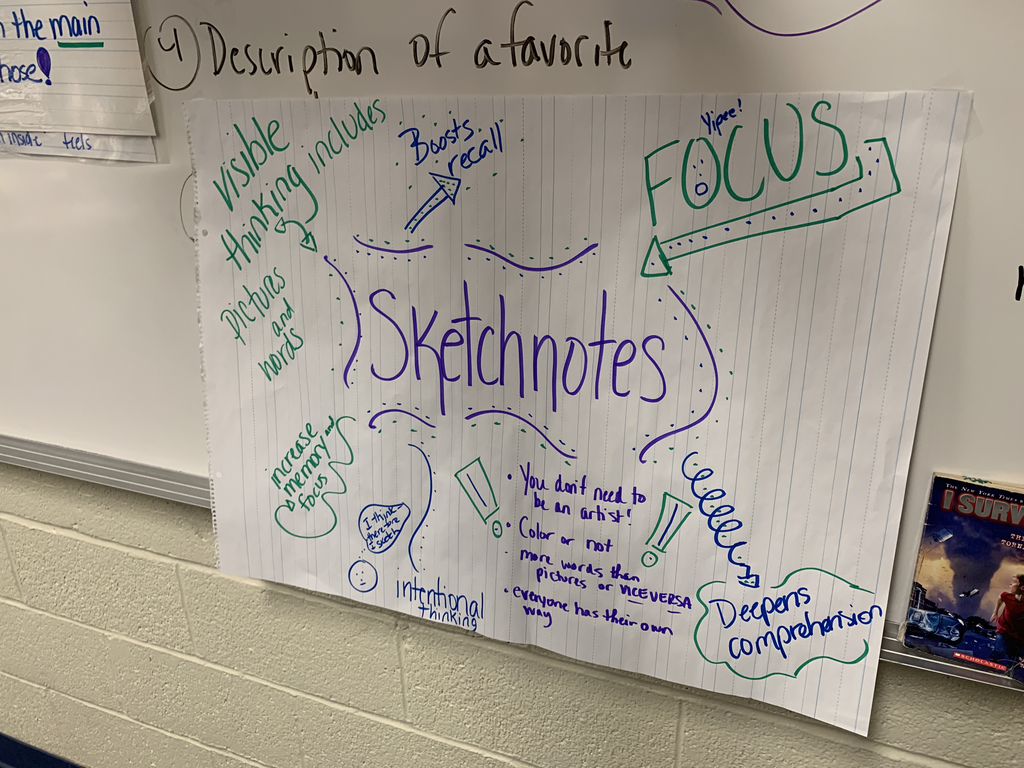 n the main
hose!
tiels
4 Description of a favorite
Visible
thinking includes
pictures
and
words
Boosts
recall
Yipee!
FOCUS
Sketchnotes
increase
memory and
focus
I think
therefore
I sketch
intentional
thinking
• You don't need to
be an artist!
• Color or not
more words than
pictures or VICE VERSA
• everyone has their own
way
Deepens
comprehension
THE NEW YORK TIMES
I SURV
TORN
SCHOLASTIC